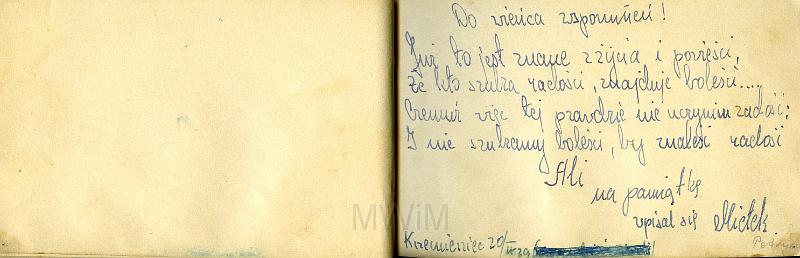 Do wieńca wspomnień!
Już to jest znane z życia i powieści,
Że kto szuka radości, znajduje boleść....
Czemuż więc tej prawdzie nie uczynim zadość;
I nie szukamy boleści, by znaleść radość
Ali
na pamiątkę
wpisał się Mietek
Krzemieniec 20/ 39
MWiM